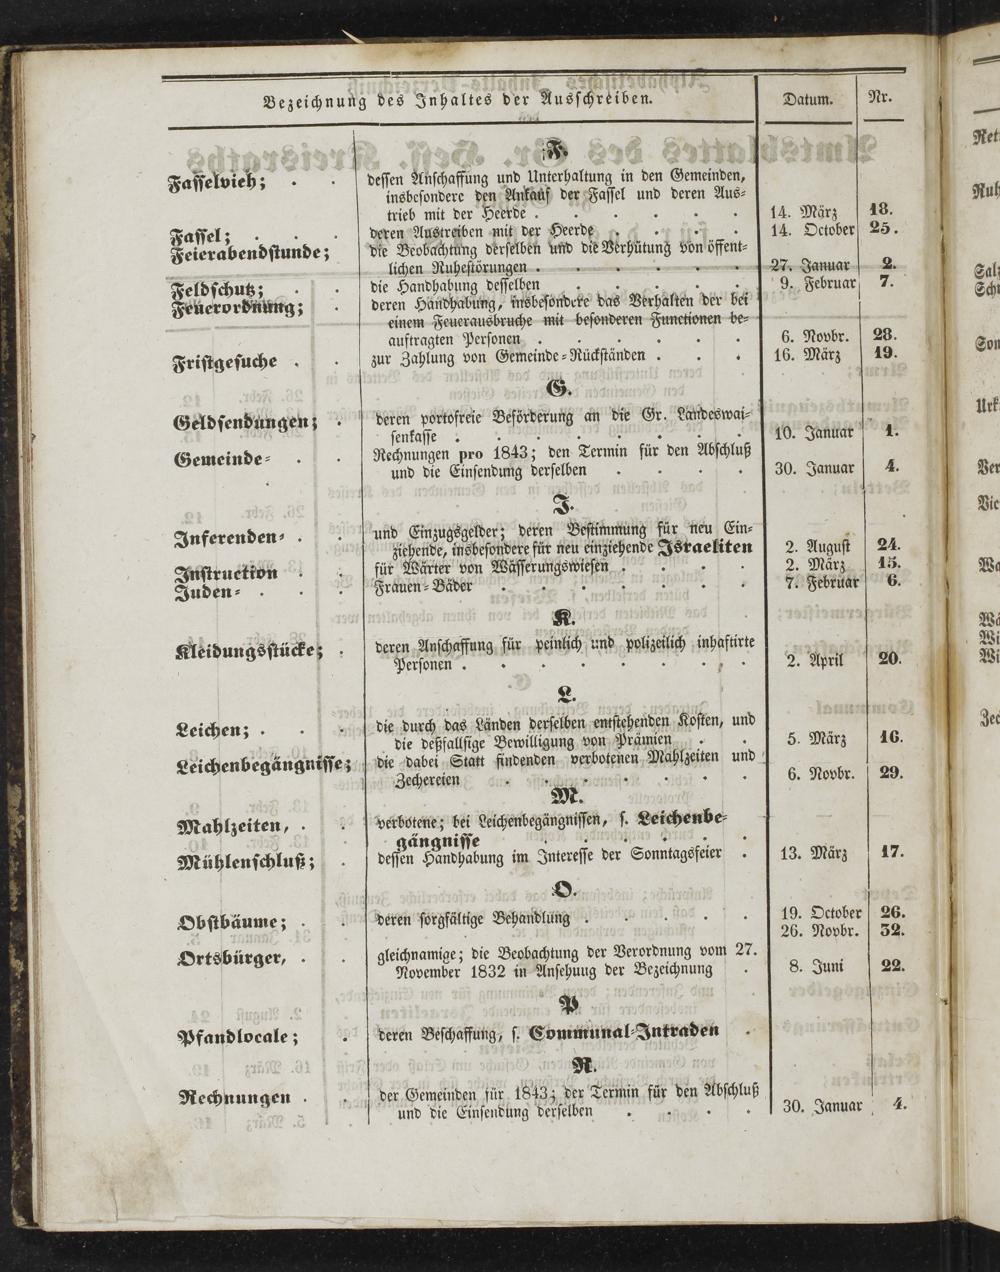 Bezeichnung des Inhaltes der Ausschreiben. Datum. Nr.
F.
Fasselvieh; . . dessen Anschaffung und Unterhaltung in den Gemeinden,
insbesondere den Ankauf der Fassel und deren Aus-
trieb mit der Heerde . . . . . . 14. März 18.
Fassel; . . . deren Austreiben mit der Heerde . . . . 14. October 25.
Feierabendstunde; die Beobachtung derselben und die Verhütung von öffent-
lichen Ruhestörungen . . . . . . 27. Januar 2.
Feldschutz; . . die Handhabung desselben . . . . . 9. Februar 7.
Feuerordnung; . deren Handhabung, insbesondere das Verhalten der bei
einem Feuerausbruche mit besonderen Functionen be-
auftragten Personen . . . . . . 6. Novbr. 28.
Fristgesuche . . zur Zahlung von Gemeinde-Rückständen . . . 16. März 19.
G.
Geldsendungen; . deren portofreie Beförderung an die Gr. Landeswai-
senkasse . . . . . . . . 10. Januar 1.
Gemeinde- . . Rechnungen pro 1843; den Termin für den Abschluß
und die Einsendung derselben . . . . 30. Januar 4.
I.
Inferenden- . . und Einzugsgelder; deren Bestimmung für neu Ein-
ziehende, insbesondere für neu einziehende Israeliten 2. August 24.
Instruction . . für Wärter von Wässerungswiesen . . . . 2. März 15.
Juden- . . . Frauen-Bäder . . . . . . . 7. Februar 6.
K.
Kleidungsstücke; . deren Anschaffung für peinlich und polizeilich inhaftirte
Personen . . . . . . . . 2. April 20.
L.
Leichen; . . . die durch das Länden derselben entstehenden Kosten, und
die deßfallsige Bewilligung von Prämien . . 5. März 16.
Leichenbegängnisse; die dabei Statt findenden verbotenen Mahlzeiten und
Zechereien . . . . . . . 6. Novbr. 29.
M.
Mahlzeiten, . . verbotene; bei Leichenbegängnissen, s. Leichenbe-
gängnisse . . . . . .
Mühlenschluß; . dessen Handhabung im Interesse der Sonntagsfeier . 13. März 17.
O.
Obstbäume; . . deren sorgfältige Behandlung . . . . . 19. October 26.
26. Novbr. 32.
Ortsbürger, . . gleichnamige; die Beobachtung der Verordnung vom 27.
November 1832 in Ansehuug der Bezeichnung . 8. Juni 22.
P.
Pfandlocale; . deren Beschaffung, s. Communal-Intraden .
R.
Rechnungen . . der Gemeinden für 1843; der Termin für den Abschluß
und die Einsendung derselben . . . . 30. Januar 4.